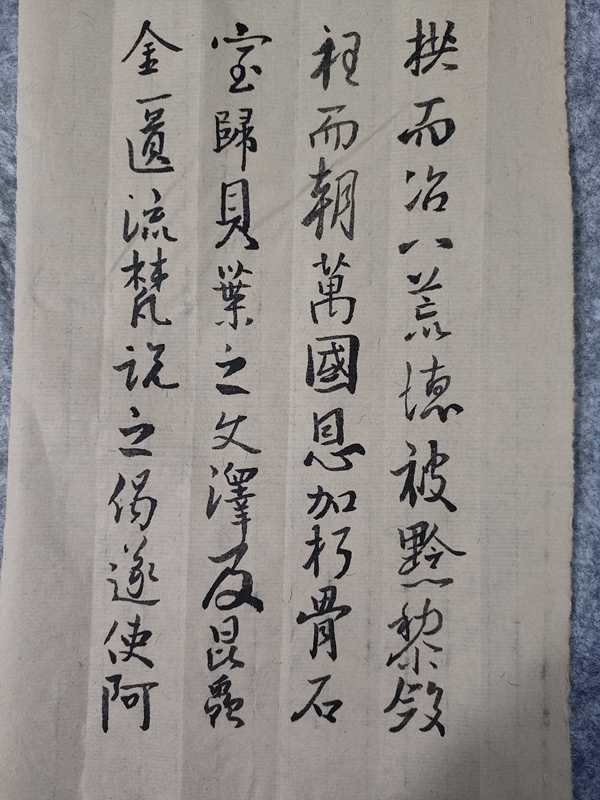 拱而治八荒德被黔黎斂
衽而朝萬國恩加朽骨石
室歸貝葉之文澤及昆蟲
金匱流梵說之偈遂使阿